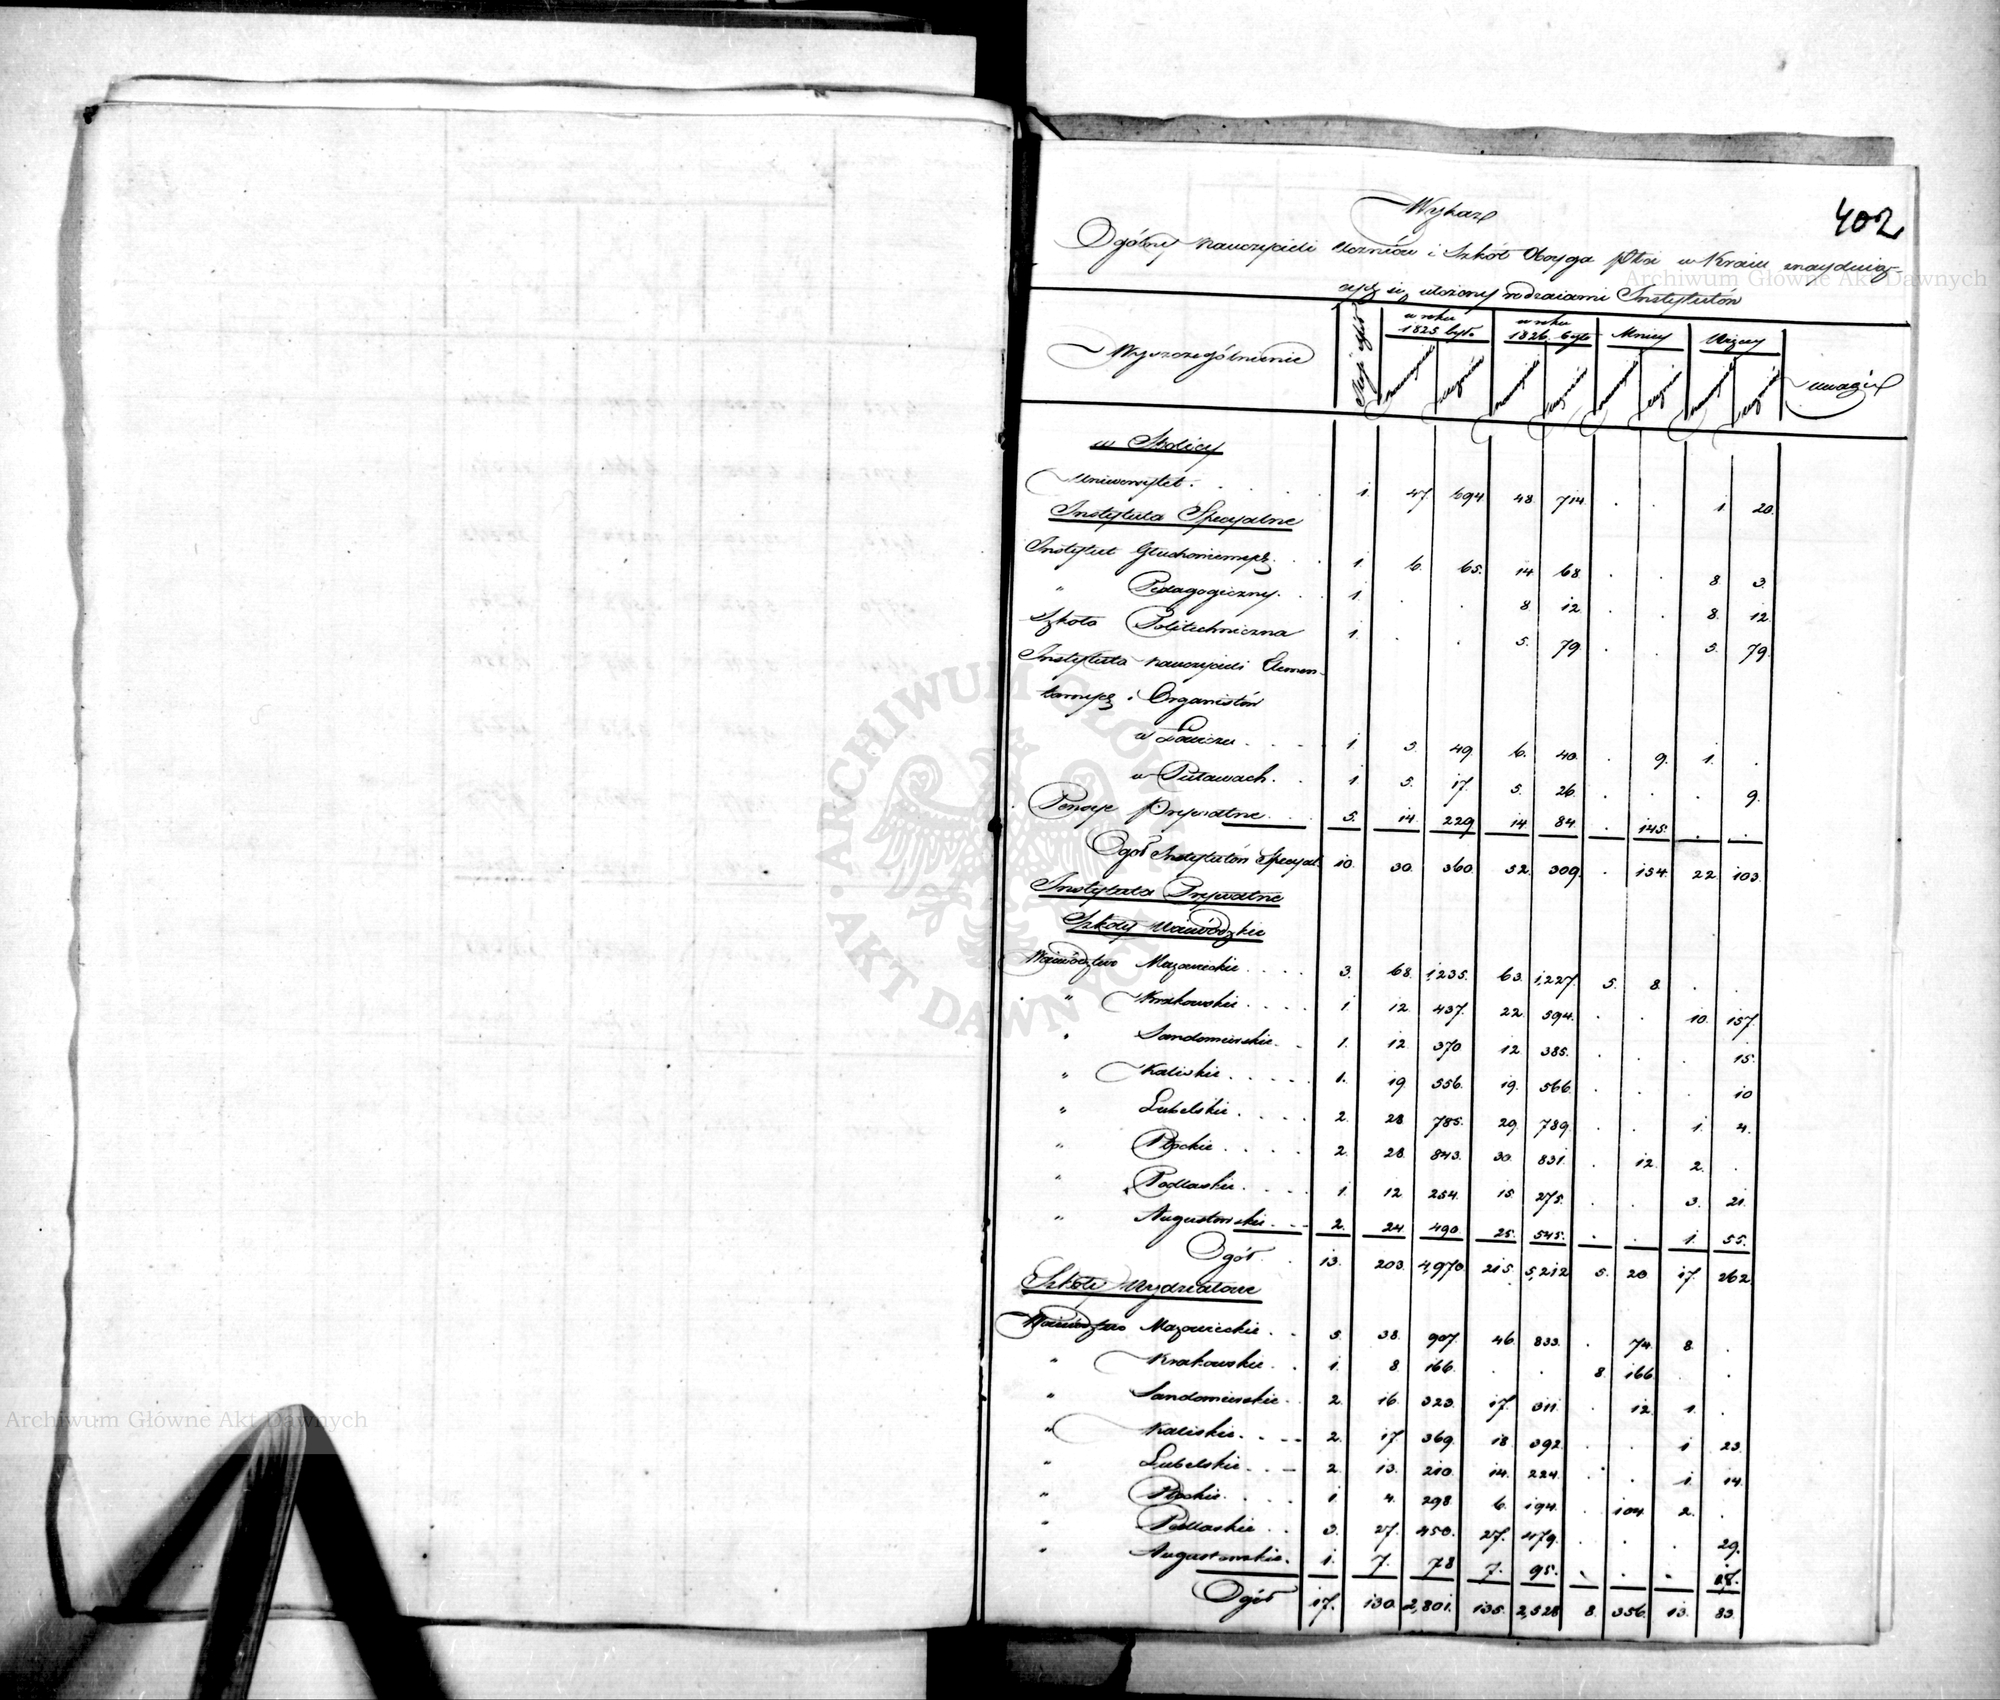 402
Wykaz
Ogólny Nauczycieli Uczniów i Szkół Oboyga Płci w Kraiu znayduią-
cych się, ułożony rodzaiami Instytutów
Wyszczególnienie | Ilość szkół | w roku 1825 było | w roku 1826 było | Mniey | Więcey | uwagi
nauczycieli | uczniów | nauczycieli | uczniów | nauczycieli | uczniów | nauczycieli | uczniów
w Stolicy
Uniwersytet . . . . 1. 47. 694 48. 714. . . 1 20.
Instytuta Specyalne
Instytut Głuchoniemych . . 1. 6. 65. 14 68. . . 8. 3.
" Pedagogiczny . . 1. . . 8. 12 . . 8. 12
Szkoła Politechniczna 1. . . 5. 79. . . 5. 79.
Instytuta Nauczycieli Elemen-
tarnych i Organistów
w Łowiczu . . . . 1. 5. 49. 6. 40. . 9. 1. .
w Puławach . . 1 5. 17. 5. 26. . . . 9.
Pensye Prywatne . . . 5. 14. 229 14. 84. . 145. . .
Ogół Instytutów Specyal. 10. 30. 360. 52. 309. . 154. 22. 103.
Instytuta Prywatne
Szkoły Woiewódzkie
Woiewództwo Mazowieckie . . . . 3. 68. 1,235. 63. 1,227. 5. 8. . .
" Krakowskie . . . . 1. 12. 437. 22. 594. . . 10. 157.
" Sandomierskie . . 1. 12. 370 12. 385. . . . 15.
" Kaliskie . . . . . 1. 19. 556. 19. 566. . . . 10
" Lubelskie . . . . 2. 28 785. 29. 789. . . 1. 4.
" Płockie . . . . . 2. 28. 843. 30. 831. . 12. 2. .
" Podlaskie . . . . 1. 12 254. 15. 275. . . 3. 21.
" Augustowskie . . . 2. 24 490. 25. 545. . . 1. 55.
Ogół . . 13. 203. 4,970 215. 5,212 5. 20. 17. 262.
Szkoły Wydziałowe
Woiewództwo Mazowieckie . . 5. 38. 907. 46. 833. . 74. 8. .
" Krakowskie . . 1. 8 166. . . 8. 166. . .
" Sandomierskie . . 2. 16. 323. 17. 311. . 12. 1. .
" Kaliskie . . . . 2. 17. 369. 18. 392. . . 1 23.
" Lubelskie . . . 2. 13. 210. 14. 224. . . 1. 14.
" Płockie . . . 1. 4. 298. 6. 194. . 104. 2. .
" Podlaskie . . 3. 27. 450. 27. 479. . . . 29.
" Augustowskie . 1. 7. 78 7. 95. . . . 17.
Ogół 17. 130. 2,801. 135. 2,528 8. 356. 13. 83.
Archiwum Główne Akt Dawnych
ARCHIWUM GŁÓWNE AKT DAWNYCH
Archiwum Główne Akt Dawnych